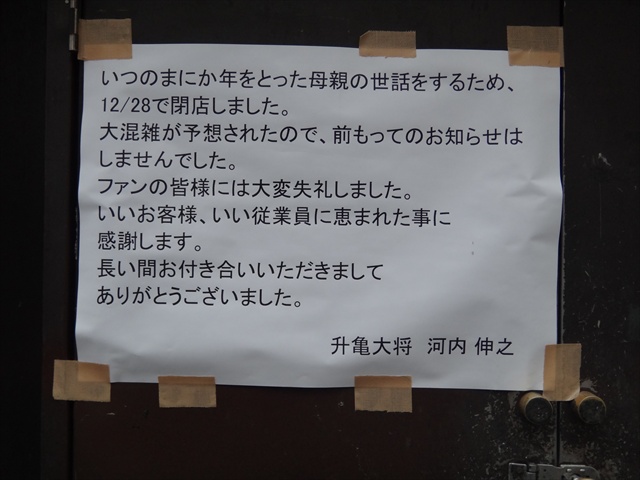 いつのまにか年をとった母親の世話をするため、
12/28で閉店しました。
大混雑が予想されたので、前もってのお知らせは
しませんでした。
ファンの皆様には大変失礼しました。
いいお客様、いい従業員に恵まれた事に
感謝します。
長い間お付き合いいただきまして
ありがとうございました。
升亀大将 河内 伸之